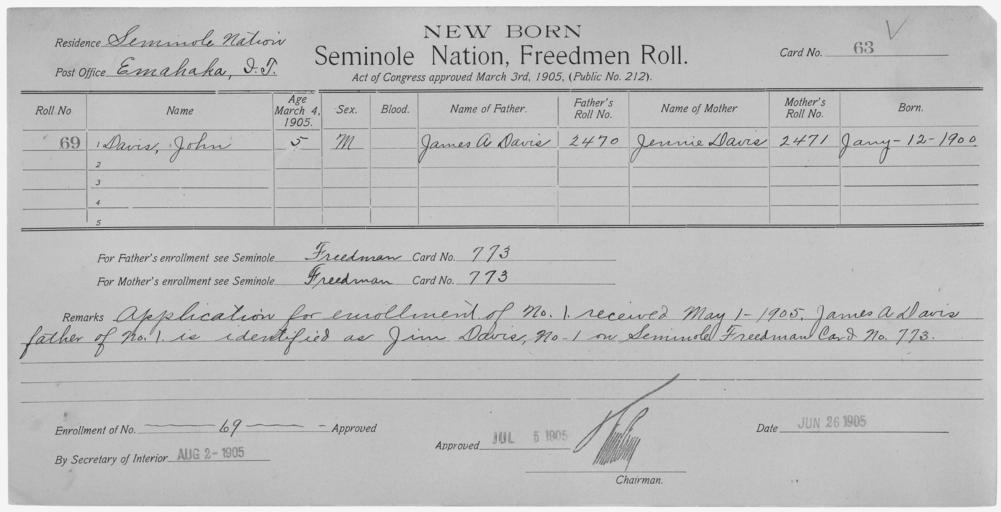 NEW BORN
Seminole Nation, Freedmen Roll.
Act of Congress approved March 3rd, 1905, (Public No. 212).
Residence Seminole Nation
Post Office Emahaka, I.T.
Card No. 63
Roll No Name Age March 4, 1905. Sex. Blood. Name of Father. Father's Roll No. Name of Mother Mother's Roll No. Born.
69 1 Davis, John 5 M James A Davis 2470 Jennie Davis 2471 Jany-12-1900
2
3
4
5
For Father's enrollment see Seminole Freedman Card No. 773
For Mother's enrollment see Seminole Freedman Card No. 773
Remarks Application for enrollment of No. 1. received May 1-1905. James A Davis
father of No. 1. is identified as Jim Davis, No-1 on Seminole Freedman Card No. 773.
Enrollment of No. 69 - Approved
By Secretary of Interior AUG 2-1905
Approved JUL 5 1905
Chairman.
Date JUN 26 1905